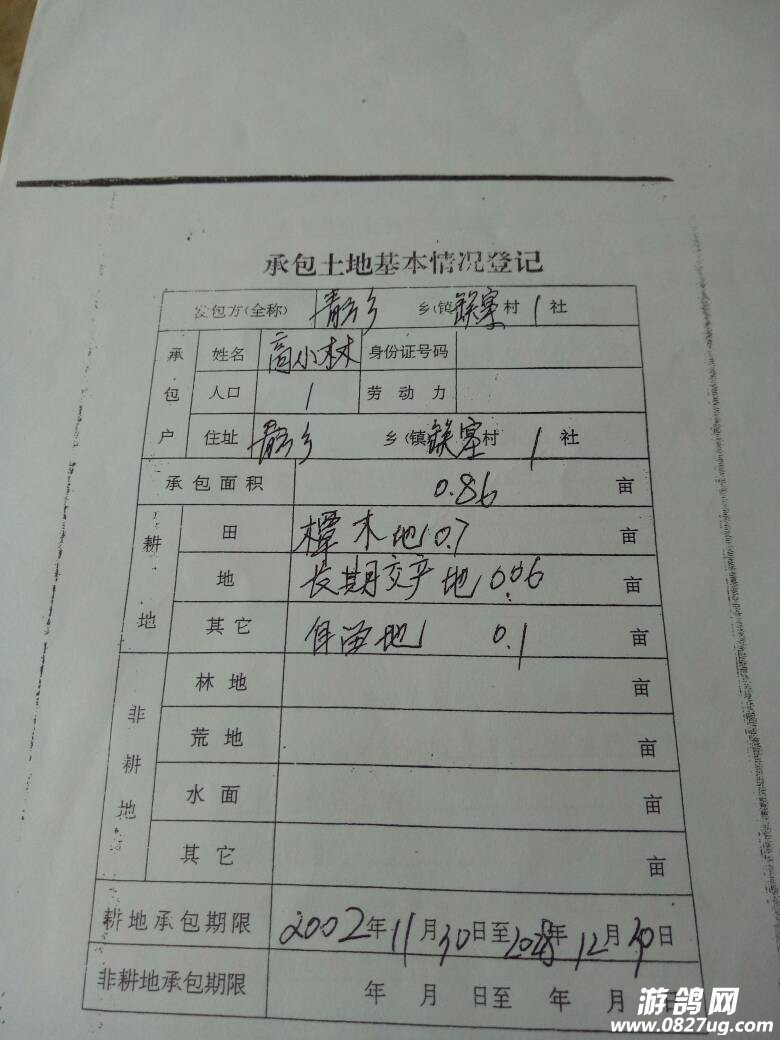 承包土地基本情况登记
发包方(全称) 青云乡 乡(镇 铁寨 村 1 社
承包户 姓名 高小林 身份证号码
人口 1 劳动力
住址 青云乡 乡(镇 铁寨 村 1 社
承包面积 0.86 亩
耕地 田 樟木地 0.7 亩
地 长期交产地 0.06 亩
其它 自留地 0.1 亩
非耕地 林地 亩
荒地 亩
水面 亩
其它 亩
耕地承包期限 2002年11月30日至2028年12月30日
非耕地承包期限 年 月 日至 年 月 日
游鸽网
www.0827ug.com